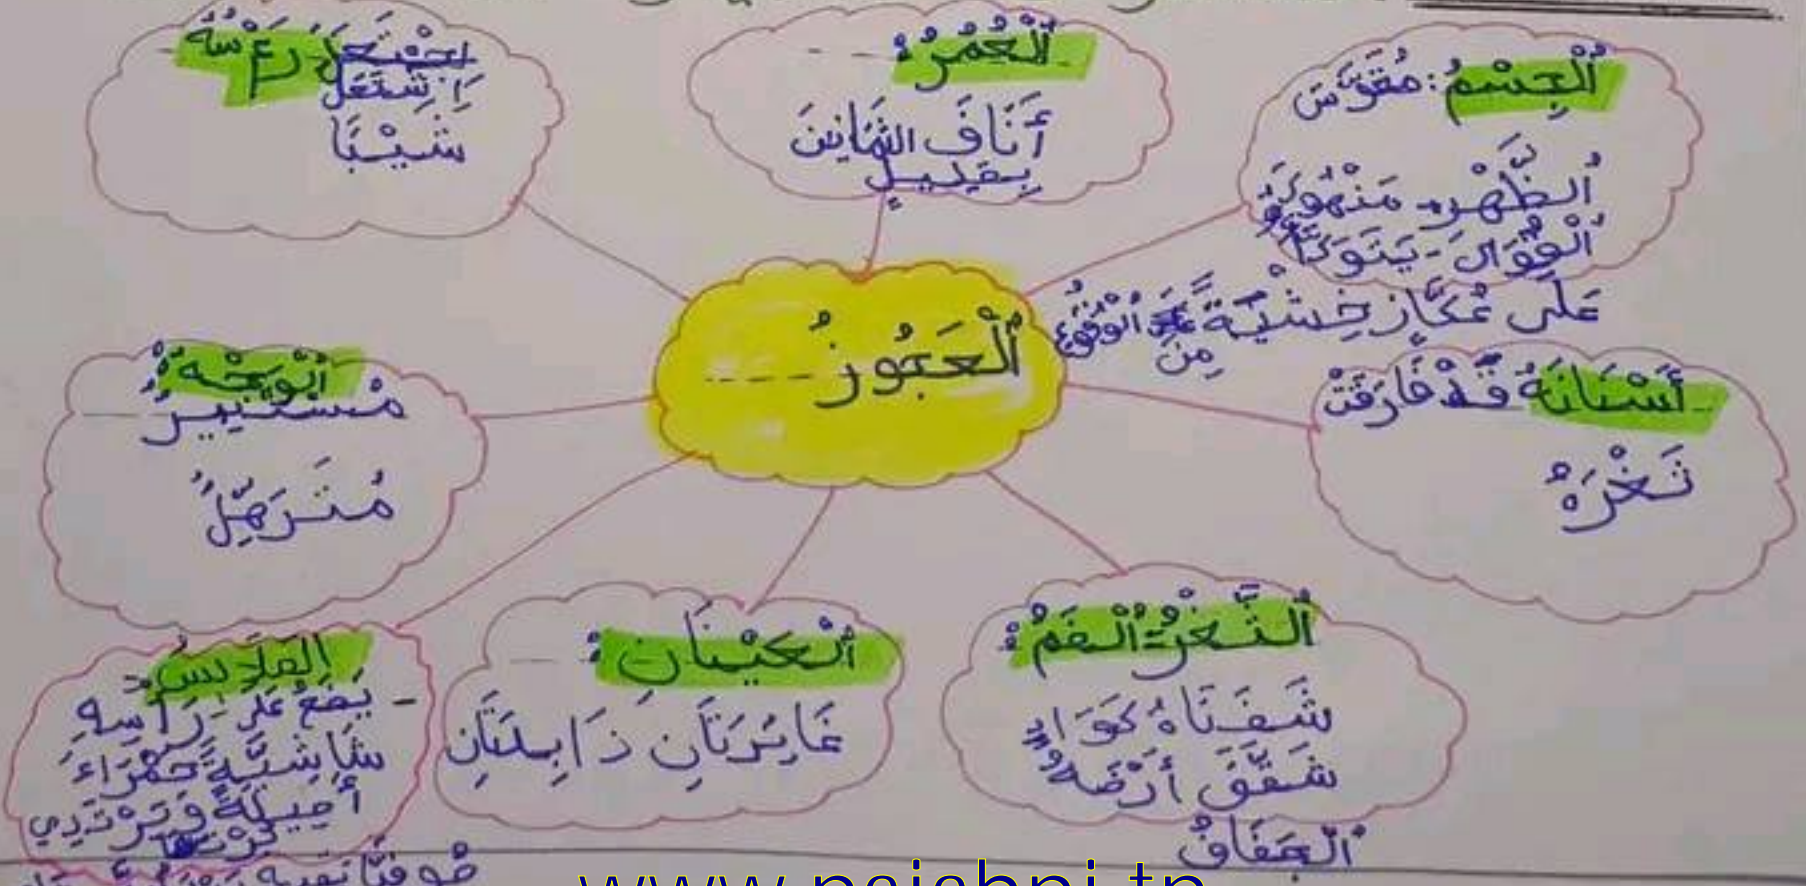 اَلْعَجُوزُ
اَلْجِسْمُ: مُقَوَّسَ
اَلظَّهْرِ - مَنْهُوكَ
اَلْقُوَى - يَتَوَكَّأُ
عَلَى عُكَّازٍ خِشْيَةً
مِنَ اَلْوُقُوعِ
اَلْعُمُرُ:
أَنَافَ الثَّمَانِينَ
بِقَلِيلٍ
رَأْسُهُ
اِشْتَعَلَ
شَيْبًا
أَسْنَانَهُ قَدْ فَارَقَتْ
ثَغْرَهُ
اَلْوَجْهُ:
مُسْتَنِيرُ
مُتَرَهِّلُ
اَلثَّغْرُ = اَلْفَمُ:
شَفَتَاهُ كَوَادٍ
شَقَّقَ أَرْضَهُ
اَلْجَفَافُ
اَلْعَيْنَانِ:
غَائِرَتَانِ ذَابِلَتَانِ
المَلَابِسُ:
- يَضَعُ عَلَى رَأْسِهِ
شَاشِيَّةً حَمْرَاءَ
أَصِيلَةً وَيَرْتَدِي
www.najahni.tn